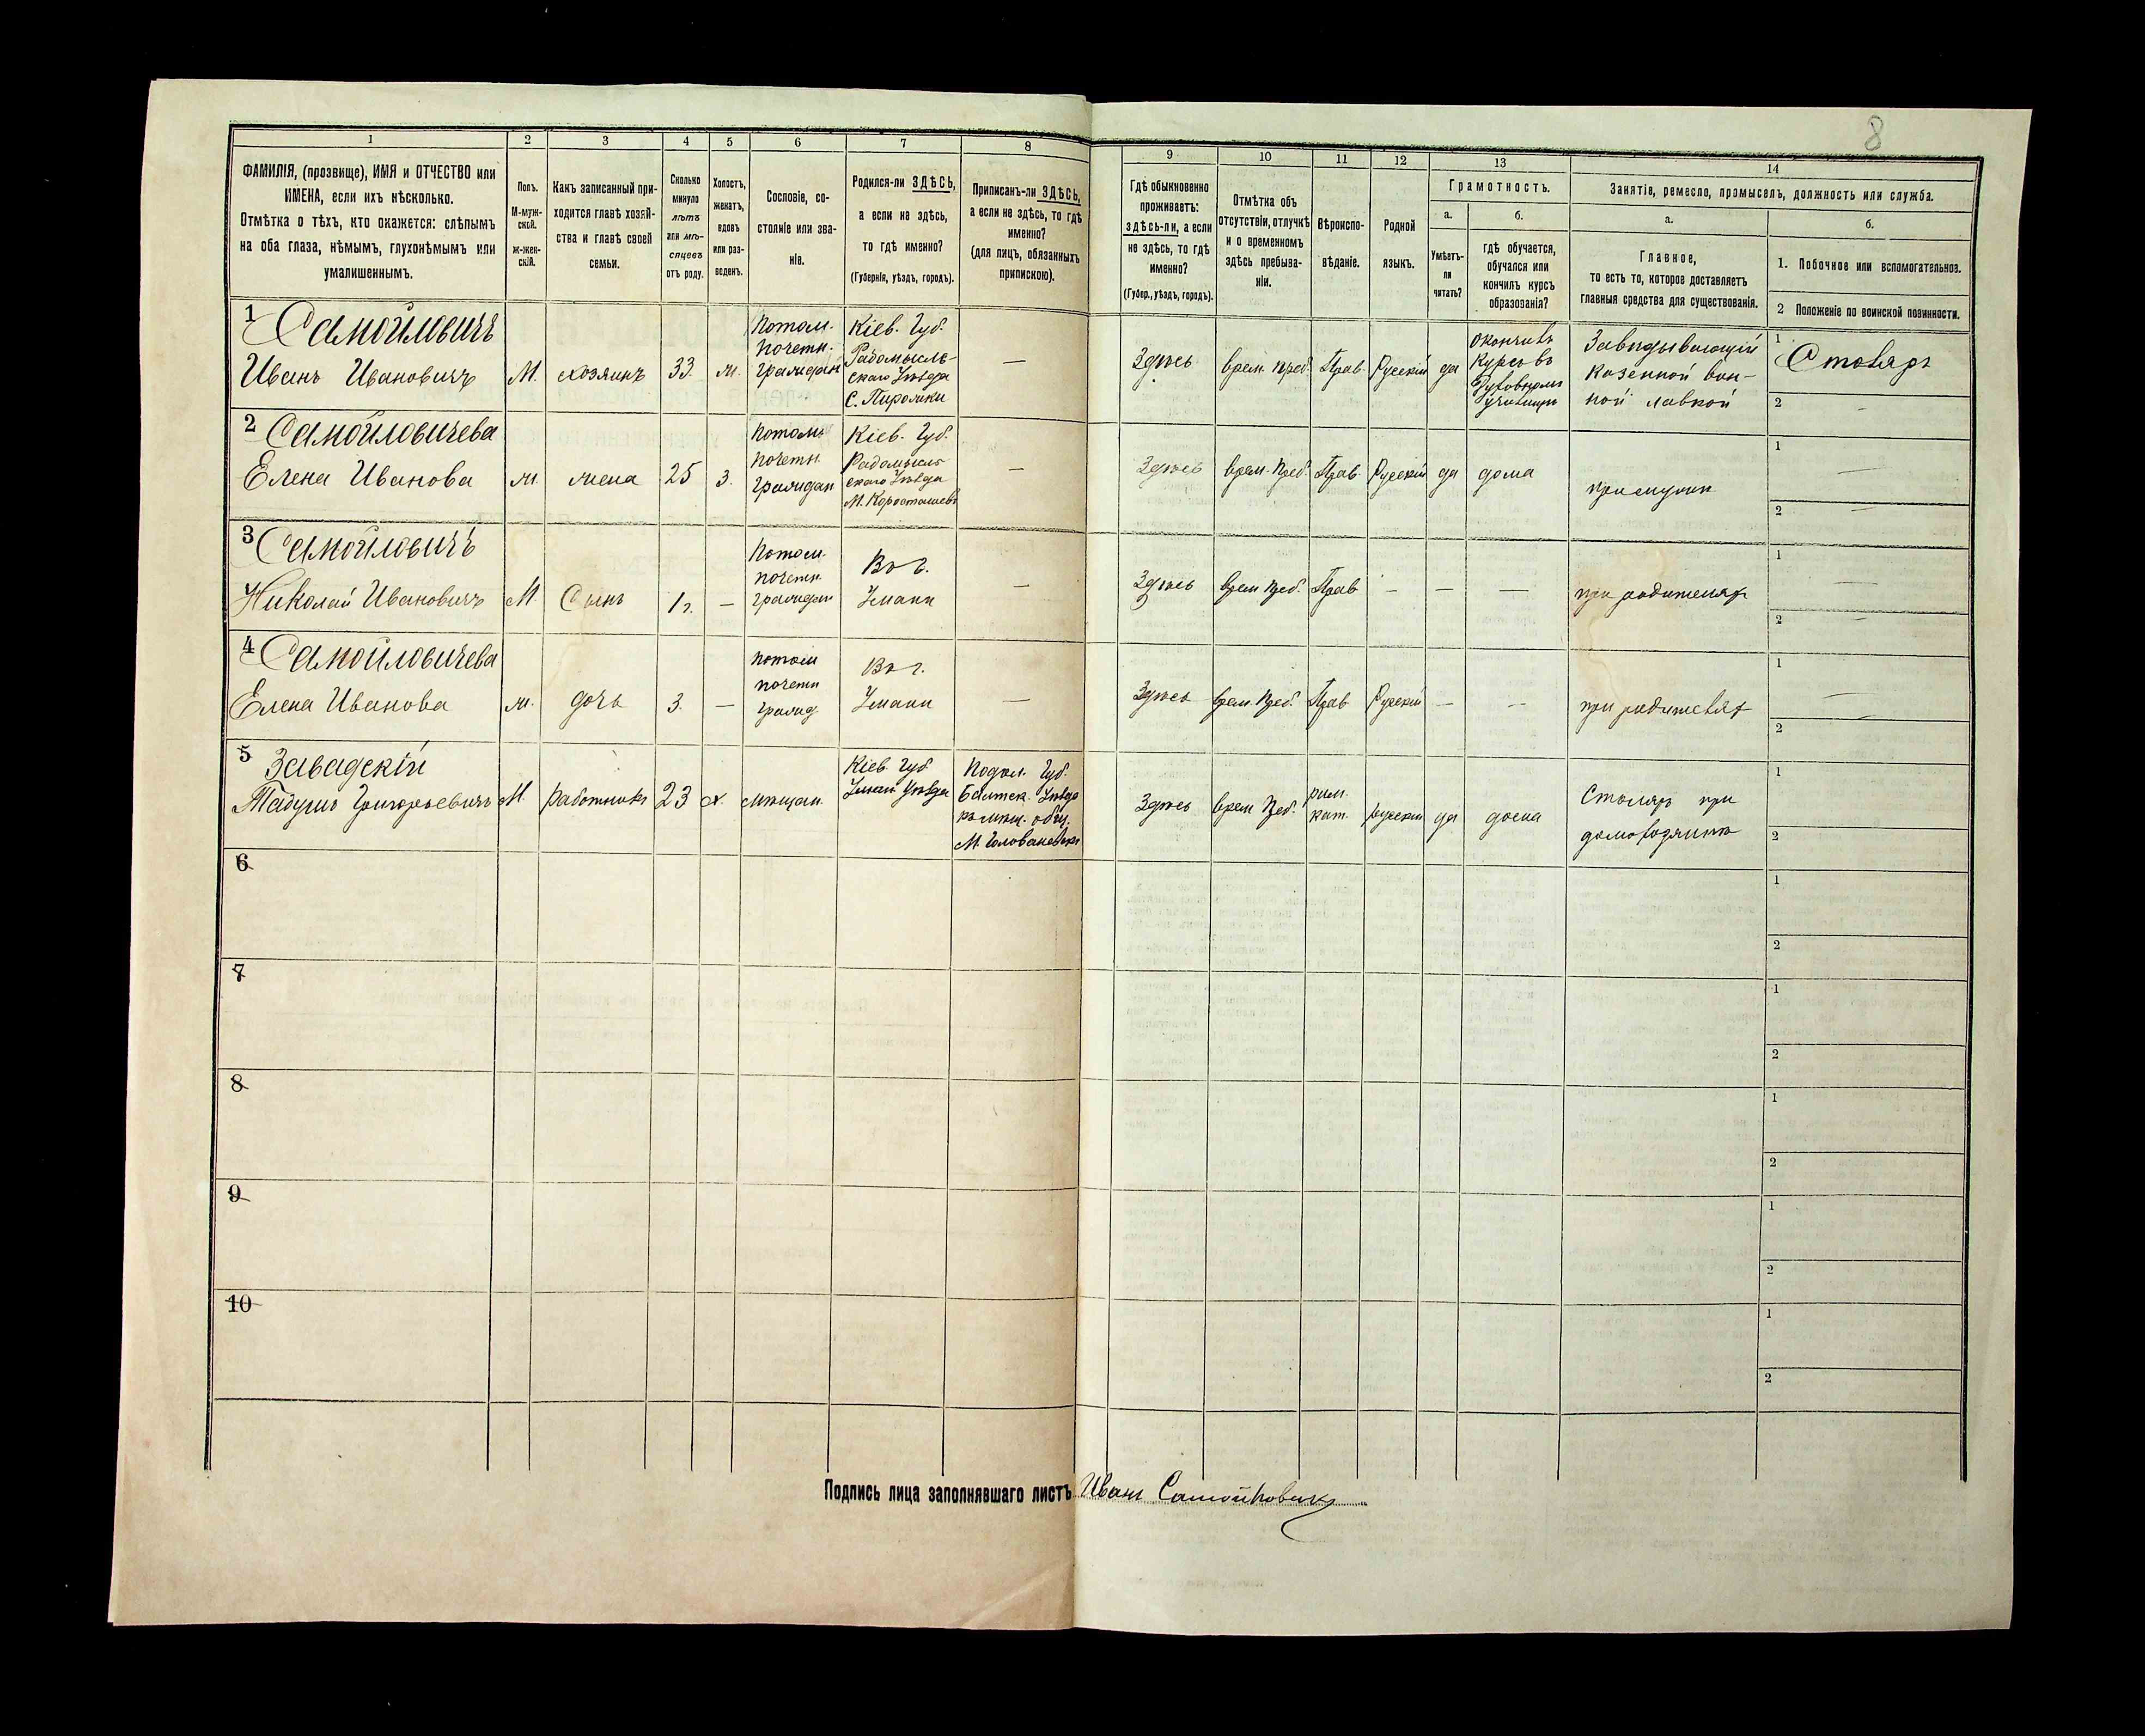 8
1 2 3 4 5 6 7 8 9 10 11 12 13 14
ФАМИЛІЯ, (прозвище), ИМЯ и ОТЧЕСТВО или
ИМЕНА, если ихъ нѣсколько.
Отмѣтка о тѣхъ, кто окажется: слѣпымъ
на оба глаза, нѣмымъ, глухонѣмымъ или
умалишеннымъ.
Полъ.
М-муж-
ской.
ж-жен-
скій.
Какъ записанный при-
ходится главѣ хозяй-
ства и главѣ своей
семьи.
Сколько
минуло
лѣтъ
или мѣ-
сяцевъ
отъ роду.
Холостъ,
женатъ,
вдовъ
или раз-
веденъ.
Сословіе, со-
стояніе или зва-
ніе.
Родился-ли ЗДѢСЬ,
а если не здѣсь,
то гдѣ именно?
(Губернія, уѣздъ, городъ).
Приписанъ-ли ЗДѢСЬ,
а если не здѣсь, то гдѣ
именно?
(для лицъ, обязанныхъ
припискою).
Гдѣ обыкновенно
проживаетъ:
здѣсь-ли, а если
не здѣсь, то гдѣ
именно?
(Губер., уѣздъ, городъ).
Отмѣтка объ
отсутствіи, отлучкѣ
и о временномъ
здѣсь пребыва-
ніи.
Вѣроиспо-
вѣданіе.
Родной
языкъ.
Грамотность.
а.
Умѣетъ-
ли
читать?
б.
гдѣ обучается,
обучался или
кончилъ курсъ
образованія?
Занятіе, ремесло, промыселъ, должность или служба.
а.
Главное,
то есть то, которое доставляетъ
главныя средства для существованія.
б.
1. Побочное или вспомогательное.
2 Положеніе по воинской повинности.
1 Самойловичъ
Иванъ Ивановичъ
М.
хозяинъ
33
ж.
Потом.
почетн.
гражданъ
Кіев. Губ.
Радомысль-
скаго Уѣзда
С. Пирожки
—
Здѣсь
врем. преб.
Прав.
Русскій
да
окончилъ
курсъ въ
Духовномъ
училищѣ
Завѣдывающій
казенной вин-
ной лавкой
1 Столяръ
2 —
2 Самойловичева
Елена Иванова
ж.
жена
25
з.
Потом.
почетн.
граждан
Кіев. Губ.
Радомысль
скаго Уѣзда
М. Коростышевъ
—
Здѣсь
врем. преб.
Прав.
Русскій
да
дома
при мужѣ
1 —
2 —
3 Самойловичъ
Николай Ивановичъ
М.
Сынъ
1 г.
—
Потом.
почетн.
граждан
Въ г.
Умани
—
Здѣсь
врем. преб.
Прав
—
—
—
при родителяхъ
1 —
2 —
4 Самойловичева
Елена Иванова
ж.
дочь
3.
—
потом
почетн
гражд
Въ г.
Умани
—
Здѣсь
врем. преб.
Прав
Русскій
—
—
при родителях
1 —
2 —
5 Завадскій
Тадеушъ Григорьевичъ
М.
работникъ
23
х.
мѣщан.
Кіев. Губ.
Уман Уѣзда
Подол. Губ.
Балтск. Уѣзда
къ мѣщ. общ.
М. Голованевскъ
Здѣсь
врем. преб.
рим.
кат.
русскій
да
дома
Столяръ при
домохозяинѣ
1
2
6
1
2
7
1
2
8
1
2
9
1
2
10
1
2
Подпись лица заполнявшаго листъ Иванъ Самойловичъ